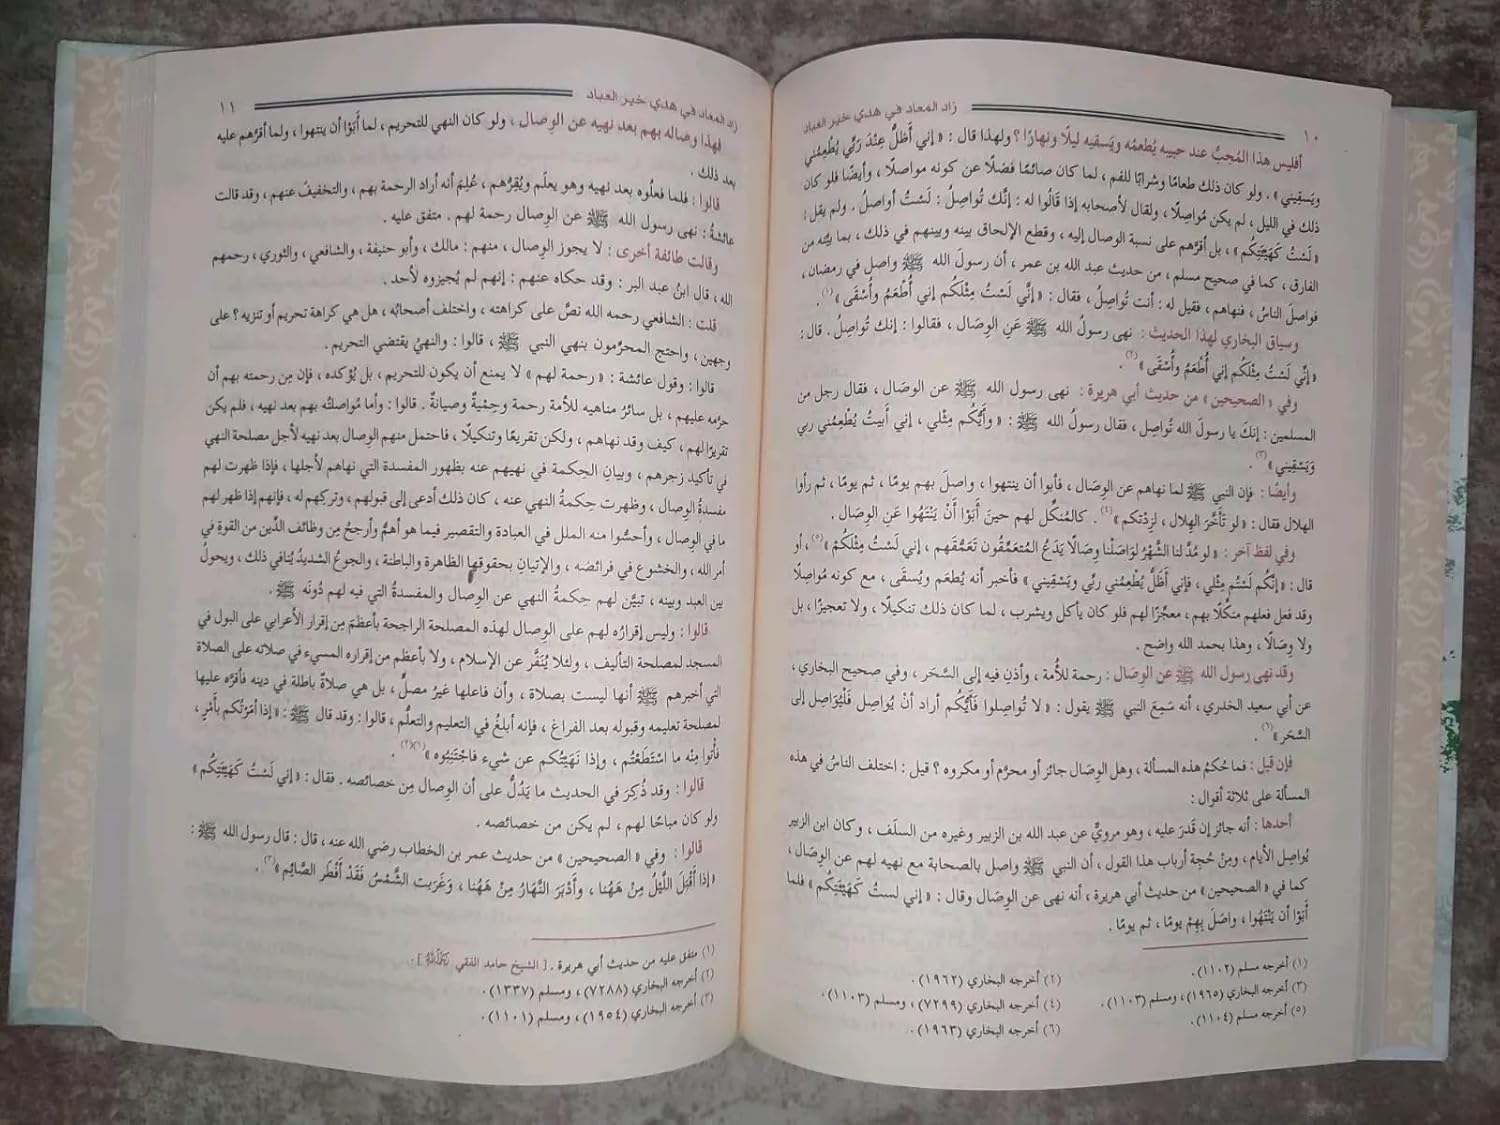 ١٠
زاد المعاد في هدي خير العباد
أفليس هذا المُحِبُّ عند حبيبه يُطعمُه ويَسقيه ليلًا ونهارًا ؟ ولهذا قال : « إني أَظَلُّ عِنْدَ رَبِّي يُطْعِمُني
ويَسقِيني » . ولو كان ذلك طعامًا وشرابًا للفم ، لما كان صائمًا فضلًا عن كونه مواصلًا ، وأيضًا فلو كان
ذلك في الليل ، لم يكن مُواصِلًا ، ولقال لأصحابه إذا قَالُوا له : إنَّك تُواصِلُ : لَسْتُ أواصِلُ . ولم يقل :
« لَسْتُ كَهَيْئَتِكُم » ، بل أقرَّهم على نسبة الوصال إليه ، وقطع الإلحاق بينه وبينهم في ذلك ، بما بيَّنه من
الفارق ، كما في صحيح مسلم ، من حديث عبد الله بن عمر ، أن رسولَ الله ﷺ واصل في رمضان ،
فواصلَ الناسُ ، فنهاهم ، فقيل له : أنت تُواصِلُ ، فقال : « إنِّي لَسْتُ مِثْلَكُم إني أُطْعَمُ وأُسْقَى »(١) .
وسياق البخاري لهذا الحديث : نهى رسولُ الله ﷺ عَنِ الوِصَال ، فقالوا : إنك تُواصِلُ . قال :
« إنِّي لَسْتُ مِثْلَكُم إني أُطْعَمُ وأُسْقَى »(٢) .
وفي « الصحيحين » من حديث أبي هريرة : نهى رسول الله ﷺ عن الوصَال ، فقال رجل من
المسلمين : إنكَ يا رسولَ الله تُواصِل ، فقال رسولُ الله ﷺ : « وأَيُّكُم مِثْلي ، إني أَبيتُ يُطْعِمُني ربي
وَيَسْقِيني »(٣) .
وأيضًا : فإن النبي ﷺ لما نهاهم عن الوِصَال ، فأبوا أن ينتهوا ، واصلَ بهم يومًا ، ثم يومًا ، ثم رأوا
الهلال فقال : « لو تَأَخَّرَ الهِلال ، لزِدْتكم »(٤) . كالمُنكِّل لهم حينَ أَبَوْا أَنْ يَنْتَهُوا عَنِ الوِصَال .
وفي لفظ آخر : « لو مُدَّ لنا الشَّهْرُ لوَاصَلْنا وِصَالًا يَدَعُ المُتعمِّقُون تَعَمُّقَهم ، إني لَسْتُ مِثْلَكُمْ »(٥) ، أو
قال : « إنَّكُم لَستُم مِثْلي ، فإني أَظَلُّ يُطْعِمُني ربِّي ويَسْقِيني » فأخبر أنه يُطعَم ويُسقَى ، مع كونه مُواصِلًا
وقد فعل فعلهم منكِّلًا بهم ، معجِّزًا لهم فلو كان يأكل ويشرب ، لما كان ذلك تنكيلًا ، ولا تعجيزًا ، بل
ولا وِصَالًا ، وهذا بحمد الله واضح .
وقد نهى رسول الله ﷺ عن الوِصَال : رحمة للأمة ، وأذِن فيه إلى السَّحَر ، وفي صحيح البخاري ،
عن أبي سعيد الخدري ، أنه سَمِعَ النبي ﷺ يقول : « لا تُواصِلوا فَأَيُّكُم أراد أنْ يُواصِل فَلْيُوَاصِل إلى
السَّحَر »(٦) .
فإن قيل : فما حُكمُ هذه المسألة ، وهل الوِصَال جائز أو محرَّم أو مكروه ؟ قيل : اختلف الناسُ في هذه
المسألة على ثلاثة أقوال :
أحدها : أنه جائز إن قَدَرَ عليه ، وهو مرويٌّ عن عبد الله بن الزبير وغيره من السلَف ، وكان ابن الزبير
يُواصِل الأيام ، ومِنْ حُجةِ أرباب هذا القول ، أن النبي ﷺ واصل بالصحابة مع نهيه لهم عن الوِصَال ،
كما في « الصحيحين » من حديث أبي هريرة ، أنه نهى عن الوِصَال وقال : « إني لستُ كَهَيْئَتِكُم » فلما
أَبَوْا أن يَنْتَهُوا ، واصَلَ بِهِمْ يومًا ، ثم يومًا .
(١) أخرجه مسلم (١١٠٢).
(٢) أخرجه البخاري (١٩٦٢).
(٣) أخرجه البخاري (١٩٦٥) ، ومسلم (١١٠٣).
(٤) أخرجه البخاري (٧٢٩٩) ، ومسلم (١١٠٣).
(٥) أخرجه مسلم (١١٠٤).
(٦) أخرجه البخاري (١٩٦٣).
زاد المعاد في هدي خير العباد
١١
فهذا وصاله بهم بعد نهيه عن الوِصال ، ولو كان النهي للتحريم ، لما أَبَوْا أن ينتهوا ، ولما أقرَّهم عليه
بعد ذلك .
قالوا : فلما فعلُوه بعد نهيه وهو يعلَم ويُقِرُّهم ، عُلِمَ أنه أراد الرحمة بهم ، والتخفيفَ عنهم ، وقد قالت
عائشةُ : نهى رسول الله ﷺ عن الوِصال رحمة لهم . متفق عليه .
وقالت طائفة أخرى : لا يجوز الوِصال ، منهم : مالك ، وأبو حنيفة ، والشافعي ، والثوري ، رحمهم
الله ، قال ابنُ عبد البر : وقد حكاه عنهم : إنهم لم يُجيزوه لأحد .
قلت : الشافعي رحمه الله نصَّ على كراهته ، واختلف أصحابُه ، هل هي كراهة تحريم أو تنزيه ؟ على
وجهين ، واحتج المحرِّمون بنهي النبي ﷺ ، قالوا : والنهيُ يقتضي التحريم .
قالوا : وقول عائشة : « رحمة لهم » لا يمنع أن يكون للتحريم ، بل يُؤكده ، فإن مِن رحمته بهم أن
حرَّمه عليهم ، بل سائرُ مناهيه للأمة رحمة وحِمْيةٌ وصيانةٌ . قالوا : وأما مُواصلتُه بهم بعد نهيه ، فلم يكن
تقريرًا لهم ، كيف وقد نهاهم ، ولكن تقريعًا وتنكيلًا ، فاحتمل منهم الوِصال بعد نهيه لأجل مصلحة النهي
في تأكيد زجرهم ، وبيانِ الحِكمة في نهيهم عنه بظهور المفسدة التي نهاهم لأجلها ، فإذا ظهرت لهم
مفسدةُ الوِصال ، وظهرت حِكمةُ النهي عنه ، كان ذلك أدعى إلى قبولهم ، وتركِهم له ، فإنهم إذا ظهر لهم
ما في الوِصال ، وأحسُّوا منه الملل في العبادة والتقصير فيما هو أهمُّ وأرجحُ مِن وظائف الدِّين من القوةِ في
أمر الله ، والخشوع في فرائضه ، والإتيانِ بحقوقها الظاهرة والباطنة ، والجوعُ الشديدُ يُنافي ذلك ، ويحولُ
بين العبد وبينه ، تبيَّن لهم حِكمةُ النهي عن الوِصال والمفسدةُ التي فيه لهم دُونَه ﷺ .
قالوا : وليس إقرارُه لهم على الوِصال لهذه المصلحة الراجحة بأعظمَ مِن إقرار الأعرابي على البول في
المسجد لمصلحة التأليف ، ولئلا يُنَفَّر عن الإسلام ، ولا بأعظم من إقراره المسيء في صلاته على الصلاة
التي أخبرهم ﷺ أنها ليست بصلاة ، وأن فاعلها غيرُ مصلٍّ ، بل هي صلاةٌ باطلة في دينه فأقرَّه عليها
لمصلحة تعليمه وقبوله بعد الفراغ ، فإنه أبلغُ في التعليم والتعلُّم ، قالوا : وقد قال ﷺ : « إذا أَمَرْتُكُم بأَمْرٍ ،
فأْتوا مِنْه ما اسْتَطَعْتُم ، وإذا نَهَيْتُكم عن شيء فاجْتَنِبُوه »(١)(٢) .
قالوا : وقد ذُكِرَ في الحديث ما يَدُلُّ على أن الوِصال مِن خصائصه . فقال : « إني لَسْتُ كَهَيْئَتِكُم »
ولو كان مباحًا لهم ، لم يكن من خصائصه .
قالوا : وفي « الصحيحين » من حديث عمر بن الخطاب رضي الله عنه ، قال : قال رسول الله ﷺ :
« إذا أقْبَلَ اللَّيْلُ مِنْ هَهُنا ، وأَدْبَرَ النَّهَارُ مِنْ هَهُنا ، وَغَرَبت الشَّمْسُ فَقَدْ أَفْطَر الصَّائِم »(٣) .
(١) متفق عليه من حديث أبي هريرة . [ الشيخ حامد الفقي رَحِمَهُ اللهُ ] .
(٢) أخرجه البخاري (٧٢٨٨) ، ومسلم (١٣٣٧).
(٣) أخرجه البخاري (١٩٥٤) ، ومسلم (١١٠١).